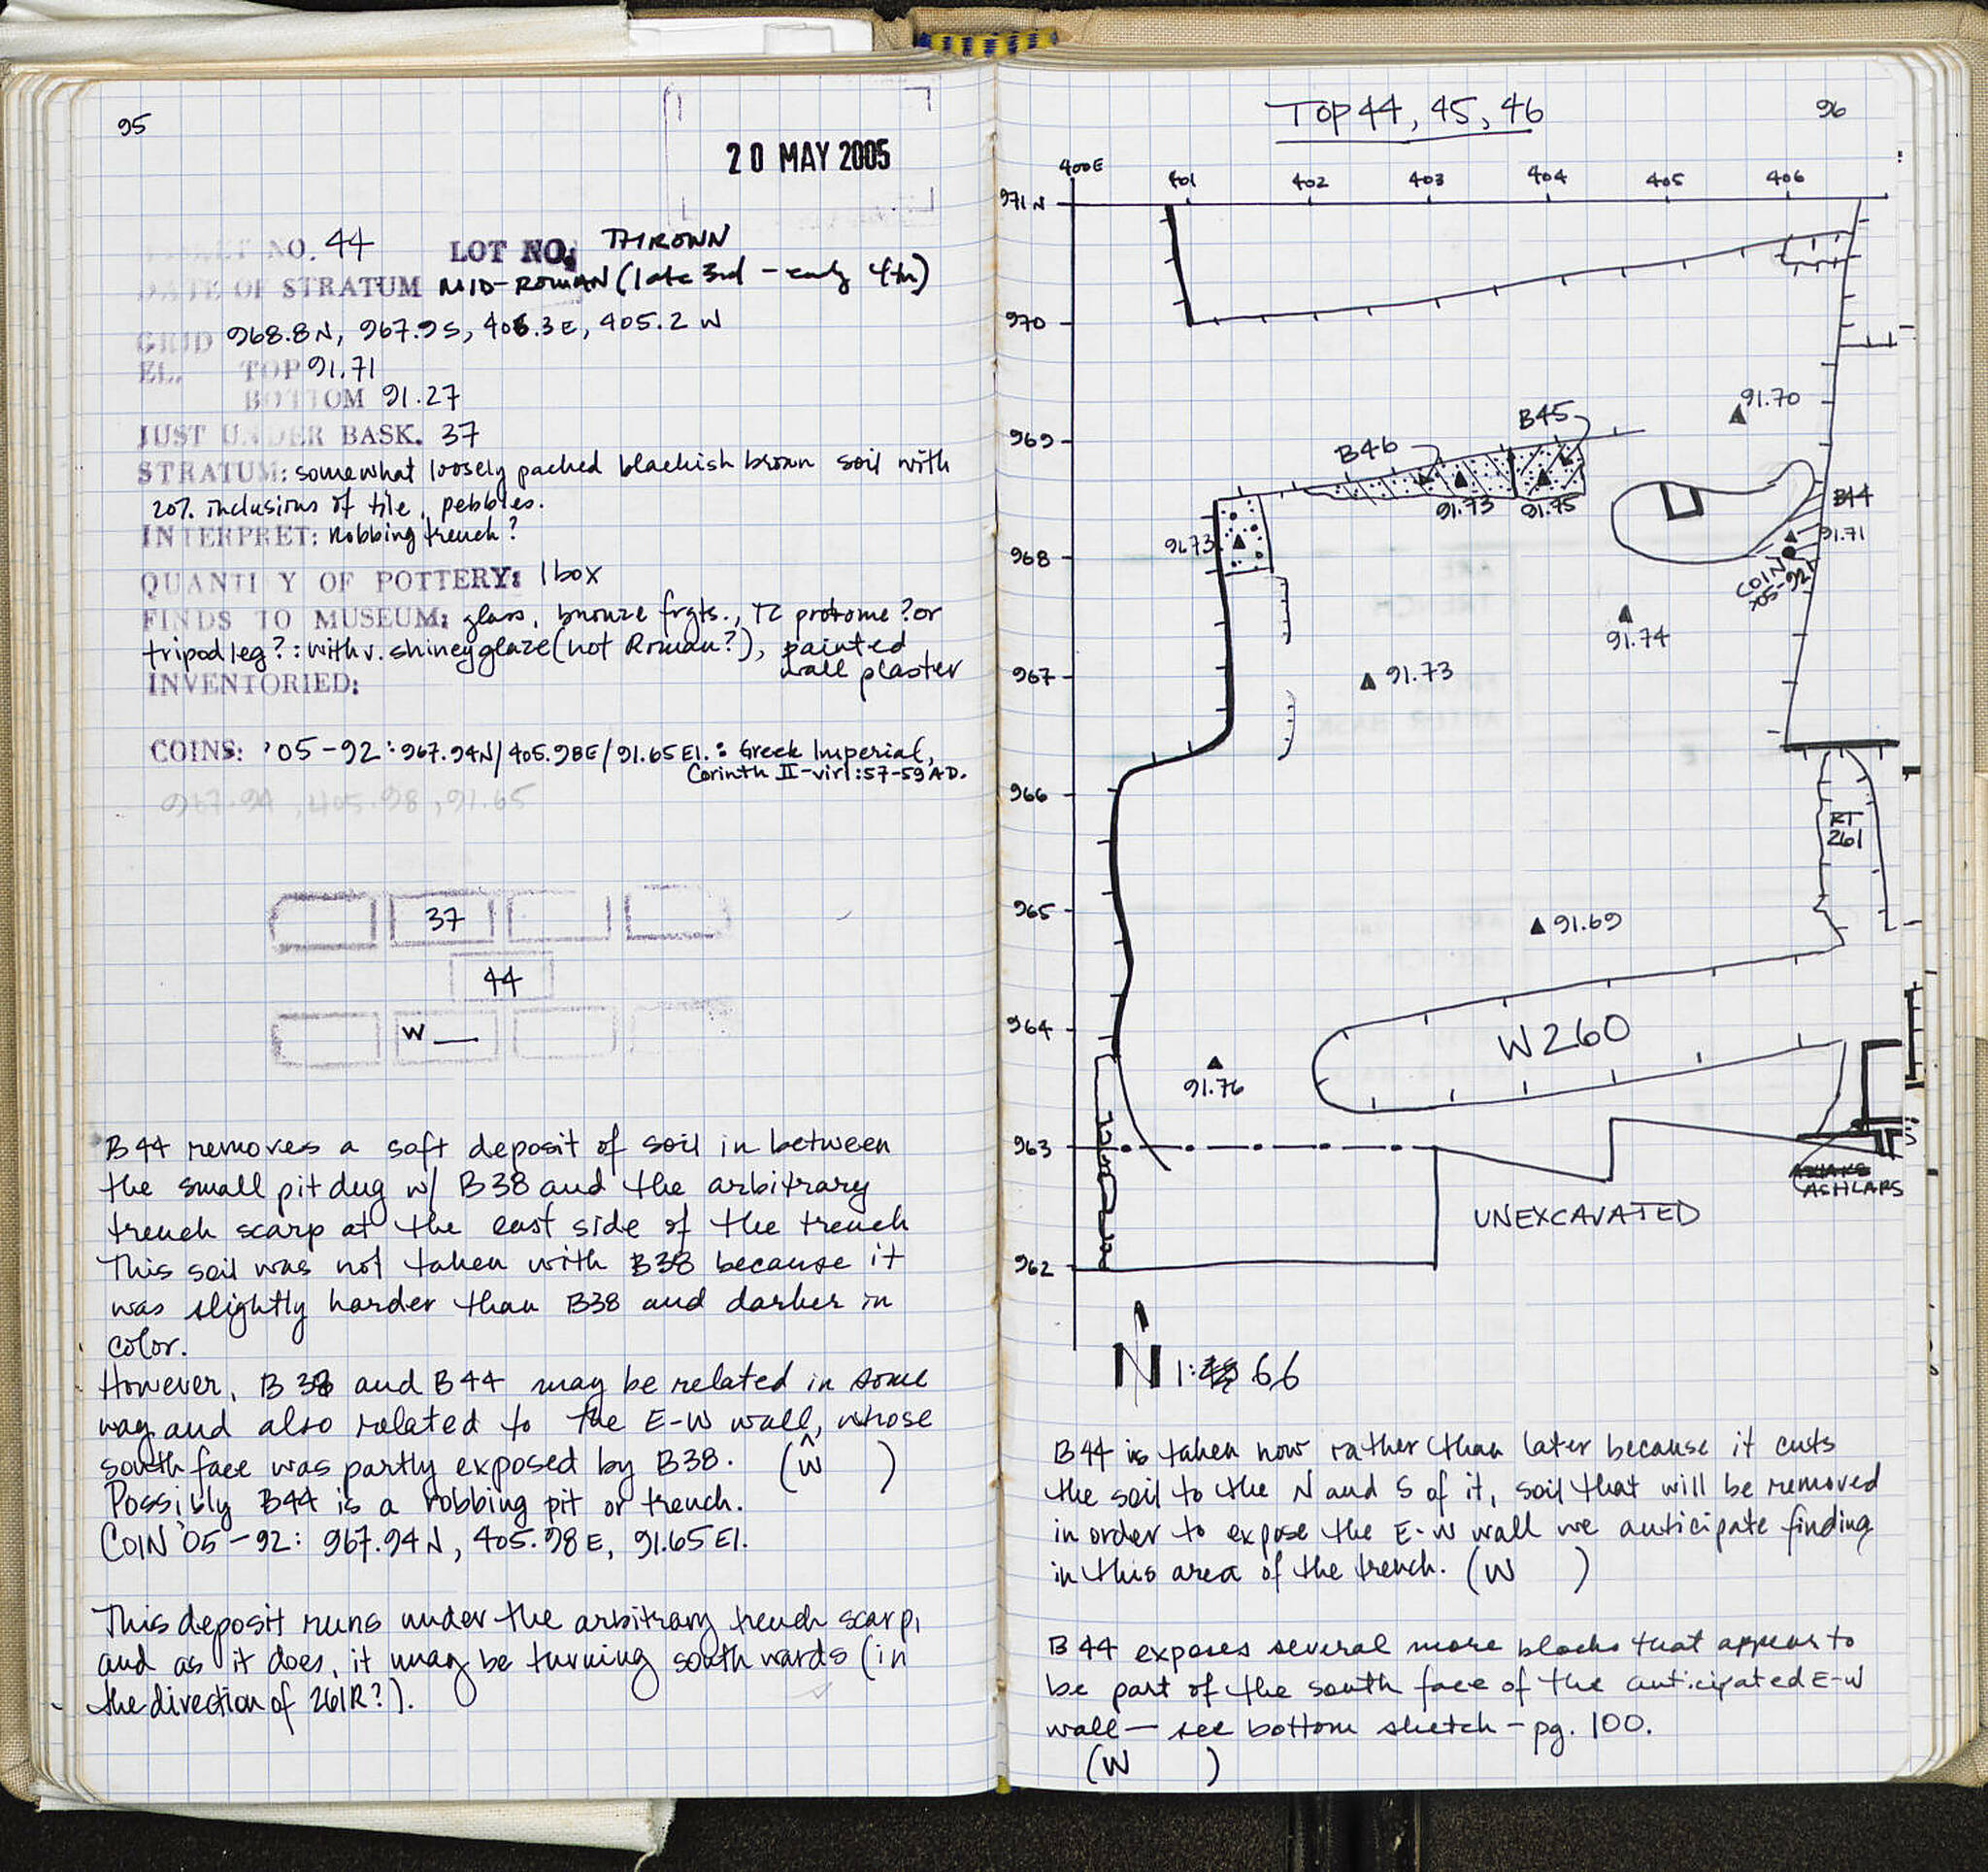 95
20 MAY 2005
BASKET NO. 44 LOT NO: THROWN
DATE OF STRATUM MID-ROMAN (late 3rd - early 4th)
GRID 968.8N, 967.9S, 406.3E, 405.2 W
EL. TOP 91.71
BOTTOM 91.27
JUST UNDER BASK. 37
STRATUM: somewhat loosely packed blackish brown soil with
20% inclusions of tile, pebbles.
INTERPRET: Robbing trench?
QUANTITY OF POTTERY: 1 box
FINDS TO MUSEUM: glass, bronze frgts., TC protome? or
tripod leg?: with v. shiney glaze (not Roman?), painted
wall plaster
INVENTORIED:
COINS: '05-92: 967.94N/405.98E/91.65El.: Greek Imperial,
Corinth II-viri: 57-59 AD.
967.94, 405.98, 91.65
37
44
W __
B44 removes a soft deposit of soil in between
the small pit dug w/ B38 and the arbitrary
trench scarp at the east side of the trench
This soil was not taken with B38 because it
was slightly harder than B38 and darker in
color.
However, B38 and B44 may be related in some
way and also related to the E-W wall, whose
south face was partly exposed by B38. (W )
Possibly B44 is a robbing pit or trench.
COIN '05-92: 967.94N, 405.98E, 91.65El.
This deposit runs under the arbitrary trench scarp,
and as it does, it may be turning southwards (in
the direction of 261R?).
TOP 44, 45, 46
96
400E 401 402 403 404 405 406
971N
970
91.70
969
B46
B45
91.73
91.75
B44
91.71
COIN
'05-92
968
91.73
91.74
967
91.73
966
RT
261
965
91.69
964
W260
91.76
963
ASHLARS
UNEXCAVATED
962
N 1:66
B44 is taken now rather than later because it cuts
the soil to the N and S of it, soil that will be removed
in order to expose the E-W wall we anticipate finding
in this area of the trench. (W )
B44 exposes several more blocks that appear to
be part of the south face of the anticipated E-W
wall — see bottom sketch - pg. 100.
(W )